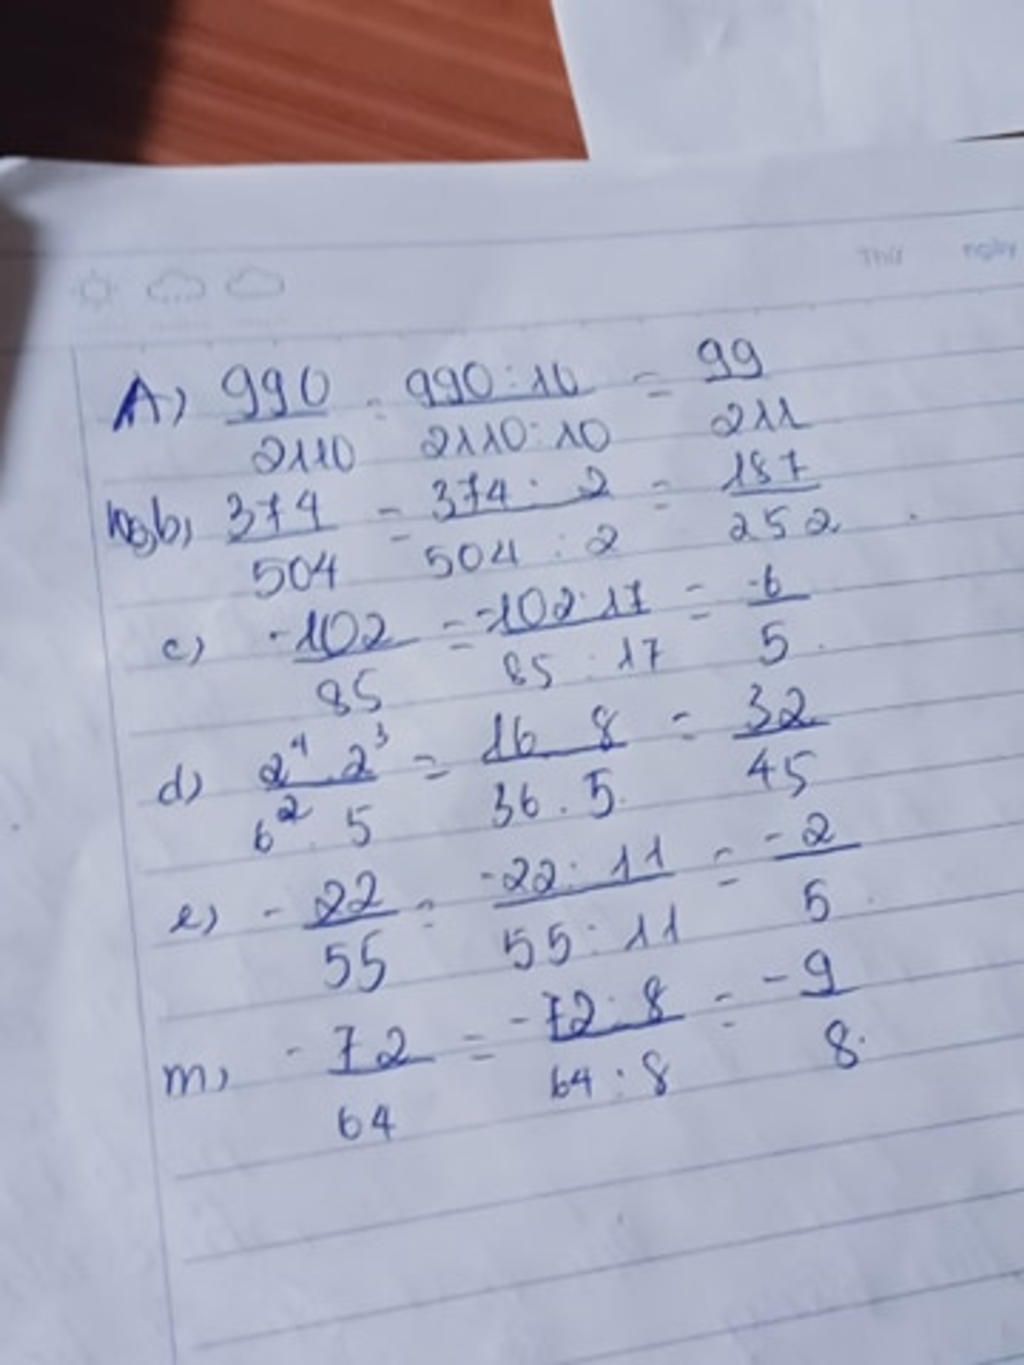 Thứ ngày
A) 990/2110 = 990:10/2110:10 = 99/211
b, 374/504 = 374:2/504:2 = 187/252
c) -102/85 = -102:17/85:17 = -6/5
d) 2⁴.2³/6².5 = 16 8/36.5 = 32/45
e) -22/55 = -22:11/55:11 = -2/5
m, -72/64 = -72:8/64:8 = -9/8